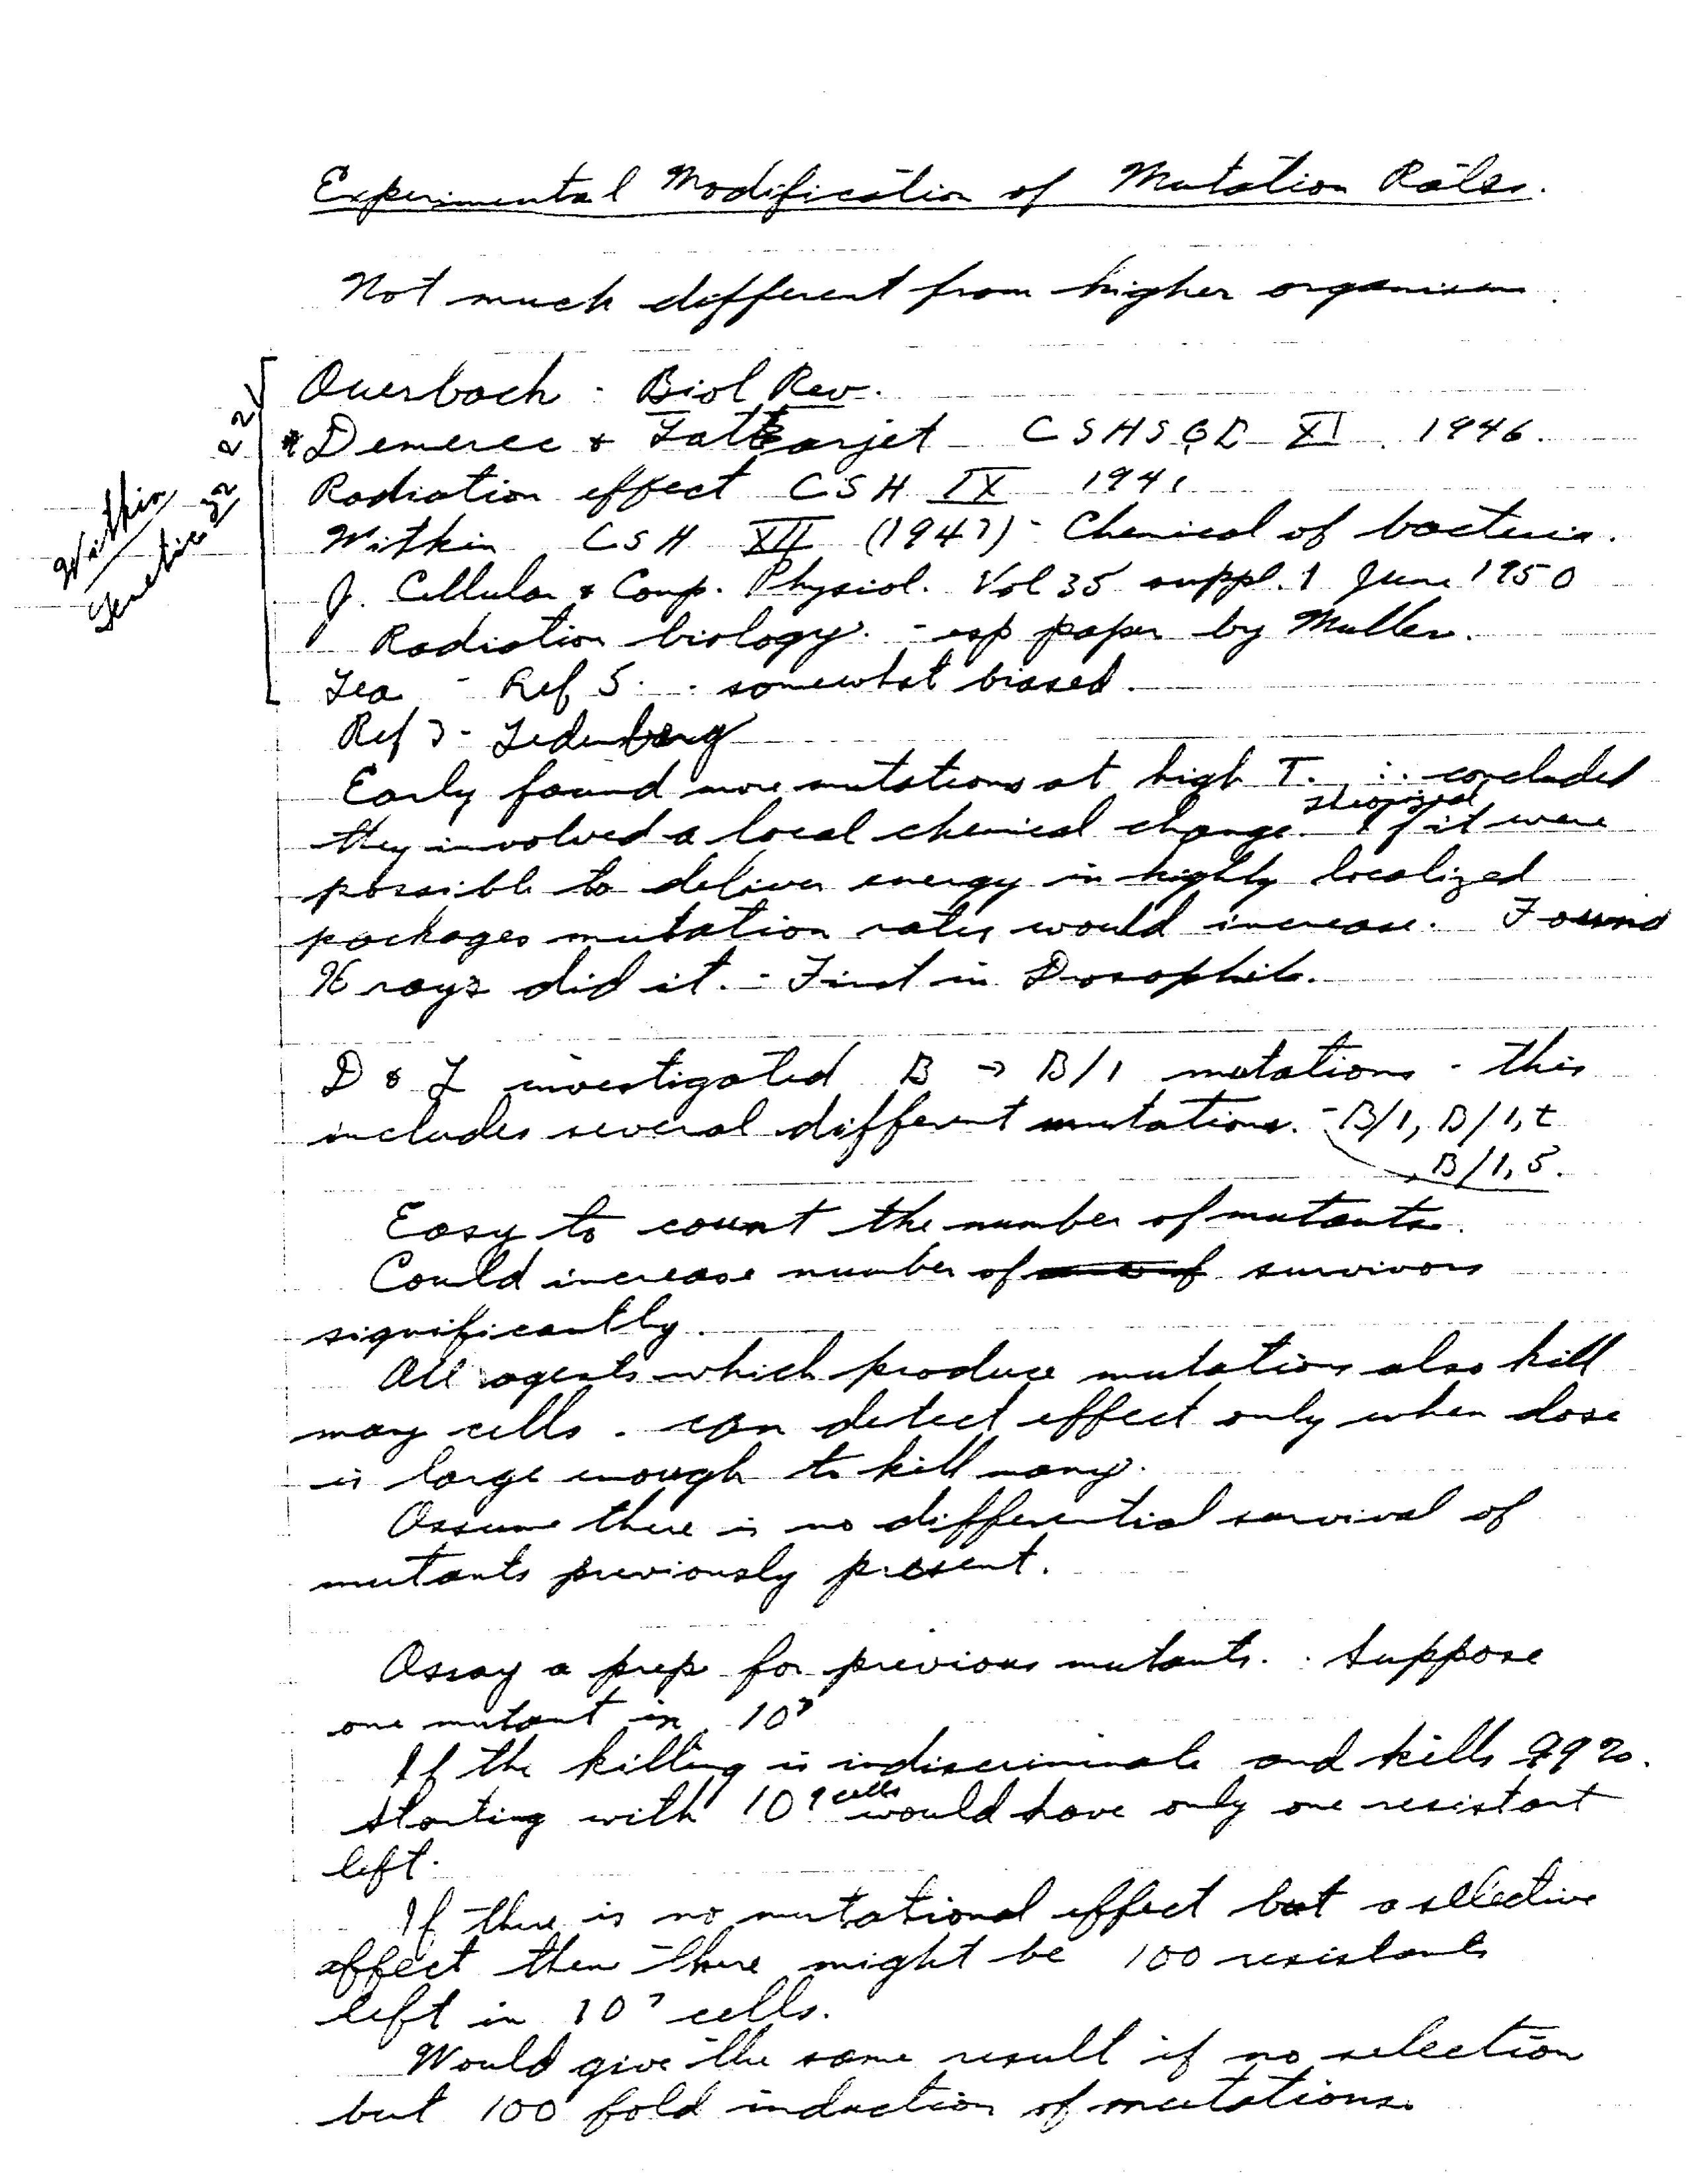 Experimental Modification of Mutation Rates.
Not much different from higher organism.
Auerbach - Biol Rev.
* Demerec & Lattarjet CSHSQB XI. 1946.
Radiation effect CSH IX 1941
Witkin CSH XII (1947) - Chemical of bacteria.
J. Cellular & Comp. Physiol. Vol 35 suppl. 1 June 1950
Radiation biology. - esp paper by Muller.
Lea - Ref 5. . somewhat biased.
Witkin
Genetics 32
Ref 3 - Lederberg
Early found more mutations at high T. ∴ concluded
they involved a local chemical change. If it were
possible to deliver energy in highly localized
packages mutation rates would increase. Found
X rays did it. - First in Drosophila.
D & L investigated B → B/1 mutations - this
includes several different mutations. - B/1, B/1,t
B/1,5.
Easy to count the number of mutants.
Could increase number of survivors
significantly.
All agents which produce mutations also kill
many cells. can detect effect only when dose
is large enough to kill many.
Assume there is no differential survival of
mutants previously present.
Assay a prep for previous mutants. Suppose
one mutant in 10⁷
If the killing is indiscriminate and kills 99%.
starting with 10⁹ cells would have only one resistant
left.
If there is no mutational effect but a selective
effect then there might be 100 resistants
left in 10⁷ cells.
Would give the same result if no selection
but 100 fold induction of mutations.